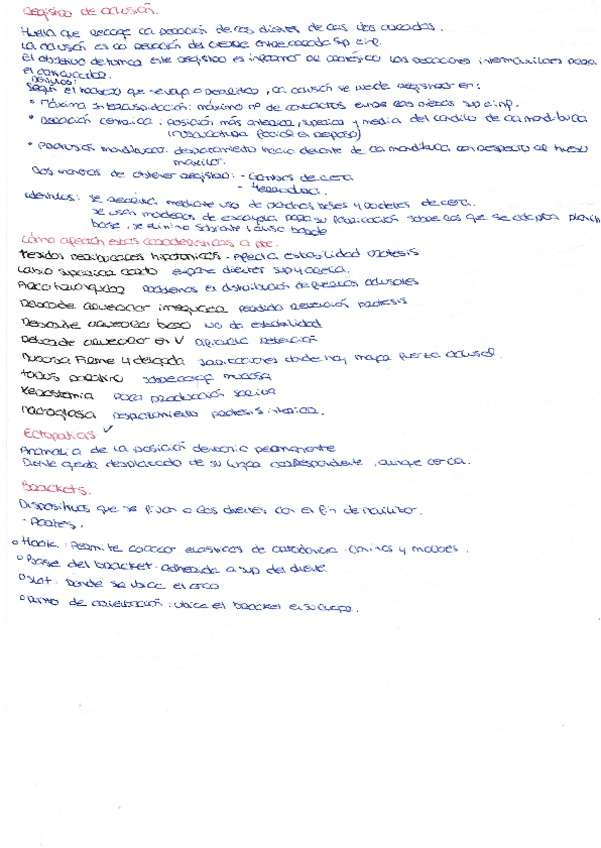 Registro de oclusión.
Huella que recoge la relación de los dientes de las dos arcadas.
La oclusión es la relación del cierre entre arcada sup e inf.
El objetivo de tomar este registro es informar al protésico las relaciones intermaxilares para
el articulador.
Según el tratamiento que se vaya a realizar, la oclusión se puede registrar en:
• Máxima intercuspidación: máximo nº de contactos entre las piezas sup e inf.
• Relación céntrica: posición más anterior, superior y media del cóndilo de la mandíbula
(musculatura facial en reposo)
• Protrusión mandibular: desplazamiento hacia delante de la mandíbula con respecto al hueso
maxilar.
Dos maneras de obtener registro: - Láminas de cera
Rodillos: se realiza mediante uso de planchas bases y rodetes de cera.
se usan modelos de escayola para su fabricación sobre los que se adapta plancha
base, se elimina sobrante
Cómo afectan estas características a pr.
Tejidos peribucales hipotónicos. Afecta estabilidad prótesis
Labio superior corto expone dientes sup y encía.
Problemas en distribución de fuerzas oclusales
Reborde alveolar irregular perdida retención prótesis
Reborde alveolar bajo no da estabilidad
Reborde alveolar en V dificulta retención
Mucosa firme y delgada irritaciones donde hay mayor fuerza oclusal.
Torus palatino sobrecarga mucosa
Xerostomia poca producción saliva
Macroglosia desplazamiento prótesis inferior.
Ectopatías ✓
Anomalía de la posición dentaria permanente
Diente queda desplazado de su lugar correspondiente, aunque cerca.
Brackets.
Dispositivos que se fijan a los dientes con el fin de movilizar.
- Partes.
○ Hook: Permite colocar elásticos de ortodoncia. Caninos y molares.
○ Base del bracket. Adherida a sup del diente
○ Slot: Donde se ubica el arco
○ Punto de orientación: ubica el bracket en su cuerpo.